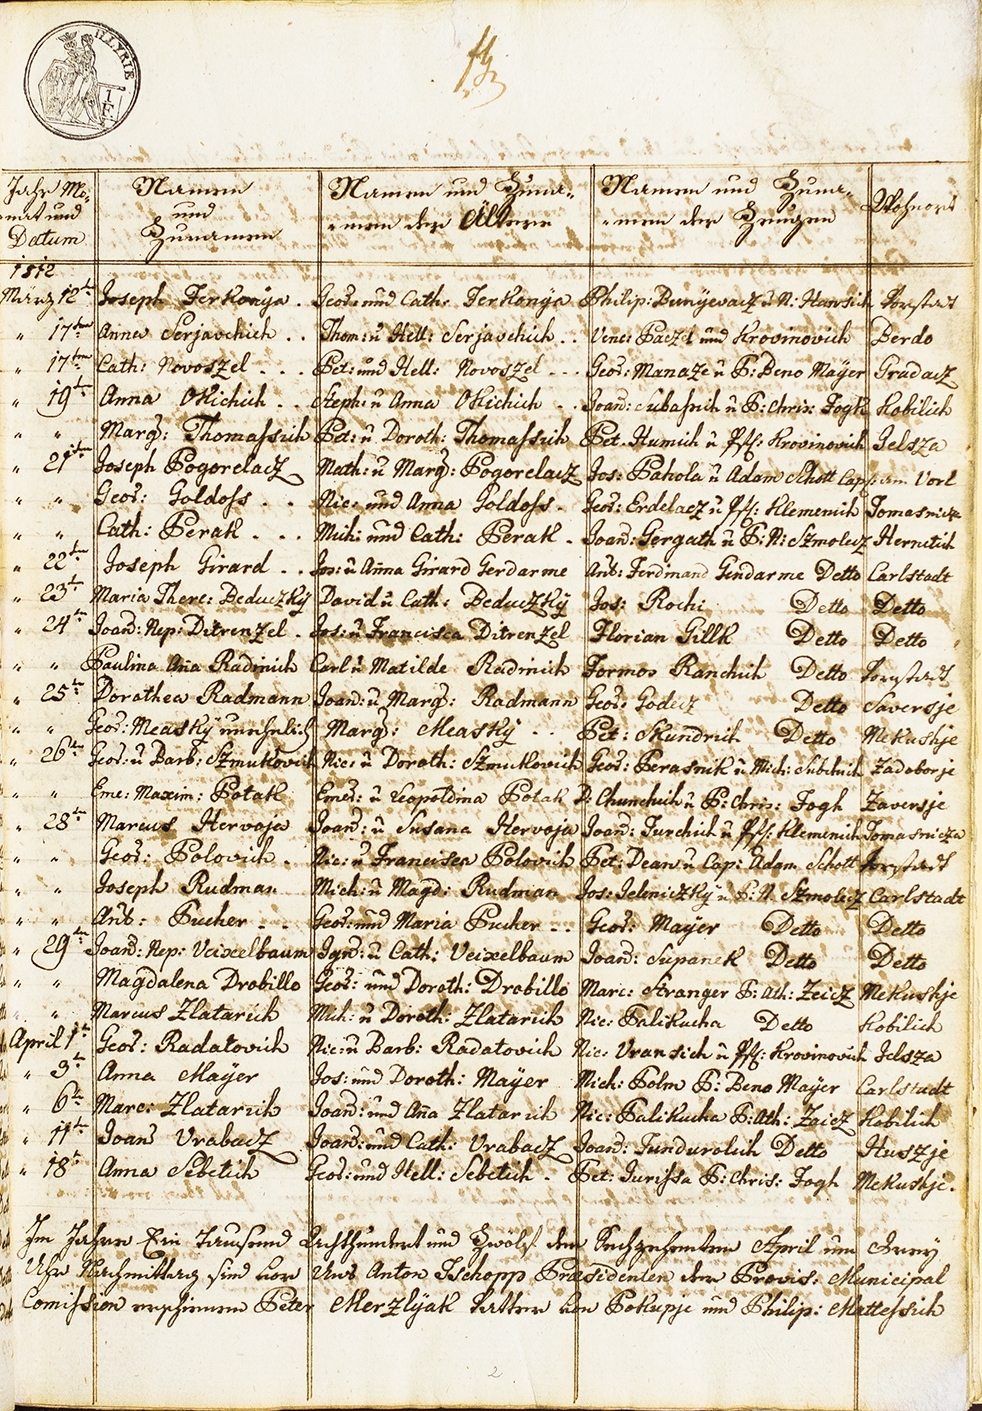 ILLYRIE
1 F.
Jahr Mo-
nat und
Datum
Namen
und
Zunamen
Namen und Zuna-
-men der Ältern
Namen und Zuna-
-men der Zeugen
Wohnort
1812
März 12t. Joseph Ferkonya . Geor: und Cath: Ferkonÿa Philip: Bunÿevacz u N: Hansich Vorstadt
" 17ten Anna Serjavchich . . Thom: u Hell: Serjavchich . . Vinc: Paczel und Krovinovich Berdo
" 17ten Cath: Novoszel . . . Pet: und Hell: Novoszel . . . Geor: Manaze u P: Beno Maÿer Gradacz
" 19t. Anna Okichich . . Steph: u Anna Okichich . . Joan: Subasnik u P: Chris: Fogh Kobilich
" " Marg: Thomassich Pet: u Doroth: Thomassich Pet. Humich u Pff: Krovinovich Jelsza
" 21ten Joseph Pogorelacz Math: u Marg: Pogorelacz Jos: Pahola u Adam Schott Cap: am Vorl
" " Geor: Goldoss . . Nic: und Anna Goldoss . Geor: Erdelacz u Pff: Klemenich Tomasnicza
" " Cath: Perak . . . Mich: und Cath: Perak . Joan: Gergath u P: N: Szmolecz Hernetich
" 22ten Joseph Girard . . Jos: u Anna Girard Gerdarme Ant: Ferdinand Gindarme Detto Carlstadt
" 23t. Maria There: Beduczkÿ David u Cath: Beduczkÿ Jos: Rochi Detto Detto
" 24t. Joan: Nep: Ditrenzel . Jos: u Francisca Ditrenzel Florian Gillk Detto Detto
" " Paulina Ana Radinich Carl u Matilde Radinich Formos Ranchich Detto Vorstadt
" 25t. Dorathea Radmann Joan: u Marg: Radmann Geor: Godecz Detto Saversje
" " Geor: Measkÿ unehelich Marg: Measkÿ . . Pet: Skundrich Detto Mekushje
" 26t. Geor: u Barb: Szmukovich Nic: u Doroth: Szmukovich Geor: Perasnik u Mich: Subitnich Zadoborje
" " Eme: Maxim: Potak Emer: u Leopoldina Potak P: Chunchich u P: Chris: Fogh Zaversje
" 28t. Marcus Hervoja Joan: u Susana Hervoja Joan: Turchich u Pff: Klemenich Tomasnicza
" " Geor: Polovich . Nic: u Francisca Polovich Pet: Dean u Cap: Adam Schott Vorstadt
" " Joseph Rudman Mich: u Magd: Rudman Jos: Jeleniczkÿ u P: N: Szmolecz Carlstadt
" " Ant: Pucher . . . Geor: und Maria Pucher . . Geor: Mayer Detto Detto
" 29t. Joan: Nep: Veixelbaum Ign: u Cath: Veixelbaum Joan: Supanek Detto Detto
" " Magdalena Drobillo Geor: und Doroth: Drobillo Marc: Stranger P: Ath: Zeicz Mekushje
" " Marcus Zlatarich Mich: u Doroth: Zlatarich Nic: Palikucha Detto Kobilich
April 1t. Geor: Radatovich Nic: u Barb: Radatovich Nic: Vransich u Pff: Krovinovich Jelsza
" 3t. Anna Maÿer Jos: und Doroth: Maÿer Mich: Polm P: Beno Mayer Carlstadt
" 6t. Marc: Zlatarich Joan: und Ana Zlatarich Nic: Palikucha P: Ath: Zaicz Kobilich
" 11t. Joan Vrabacz Joan: und Cath: Vrabacz Joan: Fundurolich Detto Huszje
" 18t. Anna Sebetich Geor: und Hell: Sebetich . Pet: Jurissa P: Chris: Fogh Mekushje.
Im Jahre Ein Tausend Achthundert und Zwölf den Sechzehenten April um Dreÿ
Uhr Nachmittag sind vor Uns Anton Tschopp Præsidenten der Provis: Municipal
Comission erschienen Peter Merzlÿak Vatter von Pokupje und Philip: Mattessich
2